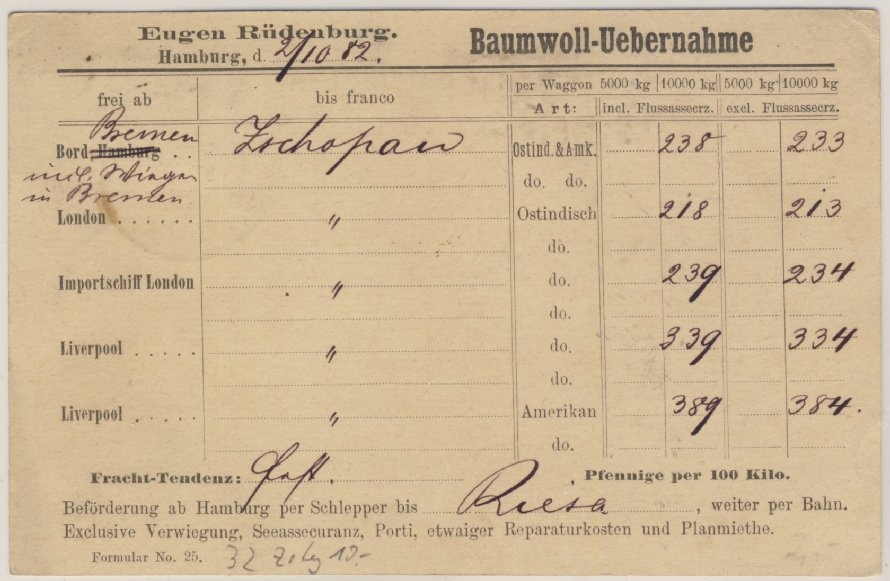 Eugen Rüdenburg.
Hamburg, d. 2/10 82.
Baumwoll-Uebernahme
frei ab bis franco per Waggon 5000 kg 10000 kg 5000 kg 10000 kg
Art: incl. Flussassecrz. excl. Flussassecrz.
Bremen
Bord Hamburg . . Zschopau Ostind. & Amk. 238 233
incl. Wiegen do. do.
in Bremen
London . . . . . . " Ostindisch 218 213
do.
Importschiff London " do. 239 234
do.
Liverpool . . . . . " do. 339 334
do.
Liverpool . . . . . " Amerikan 389 384.
do.
Fracht-Tendenz: fest. Pfennige per 100 Kilo.
Beförderung ab Hamburg per Schlepper bis Riesa, weiter per Bahn.
Exclusive Verwiegung, Seeassecuranz, Porti, etwaiger Reparaturkosten und Planmiethe.
Formular No. 25. 32